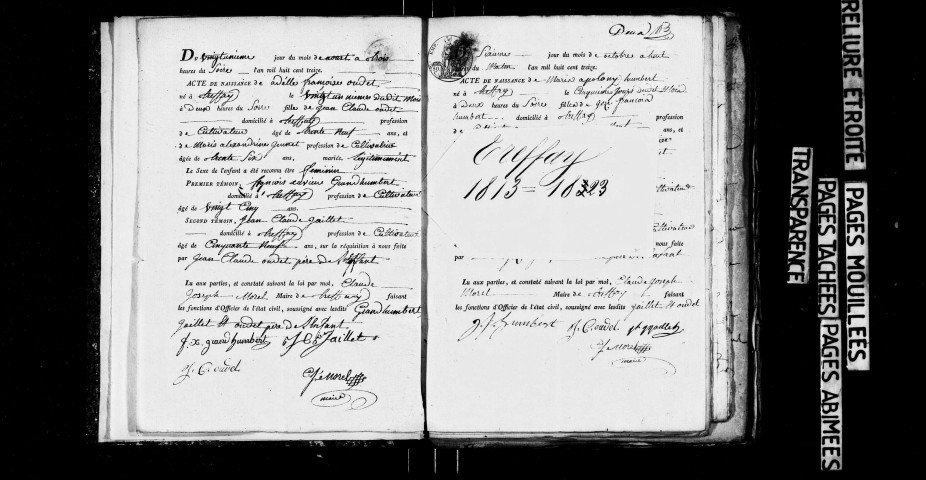 Du vingtunieme jour du mois de aoust a trois
heures du Soire l'an mil huit cent treize.
ACTE DE NAISSANCE de adelle françoise oudet
né à treffay le vingt unieme dudit Mois
à Deux heures du Soire fille de jean Claude oudet
domicilié à treffay profession
de Cultivateur âgé de trente neuf ans, et
de Marie alexandrine profession de Cultivatrice
âgée de trente Six ans, mariés legitimement
Le Sexe de l'enfant a été reconnu être feminin
PREMIER TÉMOIN, françois xavier Grandhumbert
domicilié à treffay profession de Cultivateur
âgé de vingt Cinq ans.
SECOND TÉMOIN, jean Claude Jaillet
domicilié à treffay profession de Cultivateur
âgé de Cinquante neuf ans, sur la réquisition à nous faite
par jean Claude oudet pere de l'Enfant
Lu aux parties, et constaté suivant la loi par moi, Claude
Joseph Morel Maire de treffay faisant
les fonctions d'Officier de l'état civil, soussigné avec lesdits Grandhumbert
jaillet et oudet pere de l'Enfant.
f. x. grand humbert j C Jaillet
j. C. oudet
C j Morel
maire
Deux
Sixieme jour du mois de octobre a huit
du Matin l'an mil huit cent treize.
ACTE DE NAISSANCE de Marie apolony humbert
né à treffay le Cinquieme jour dudit Mois
à Deux heures du Soire fille de françois
humbert domicilié à treffay profession
de ans, et
Treffay
1813 = 1823
Cultivateur
nous faite
par enfant
Lu aux parties, et constaté suivant la loi par moi, Claude joseph
Morel Maire de treffay faisant
les fonctions d'Officier de l'état civil, soussigné avec lesdits jaillet et oudet
humbert j. C. oudet
C j Morel
maire
RELIURE ETROITE
TRANSPARENCE
PAGES MOUILLÉES
PAGES TACHÉES
PAGES ABIMÉES